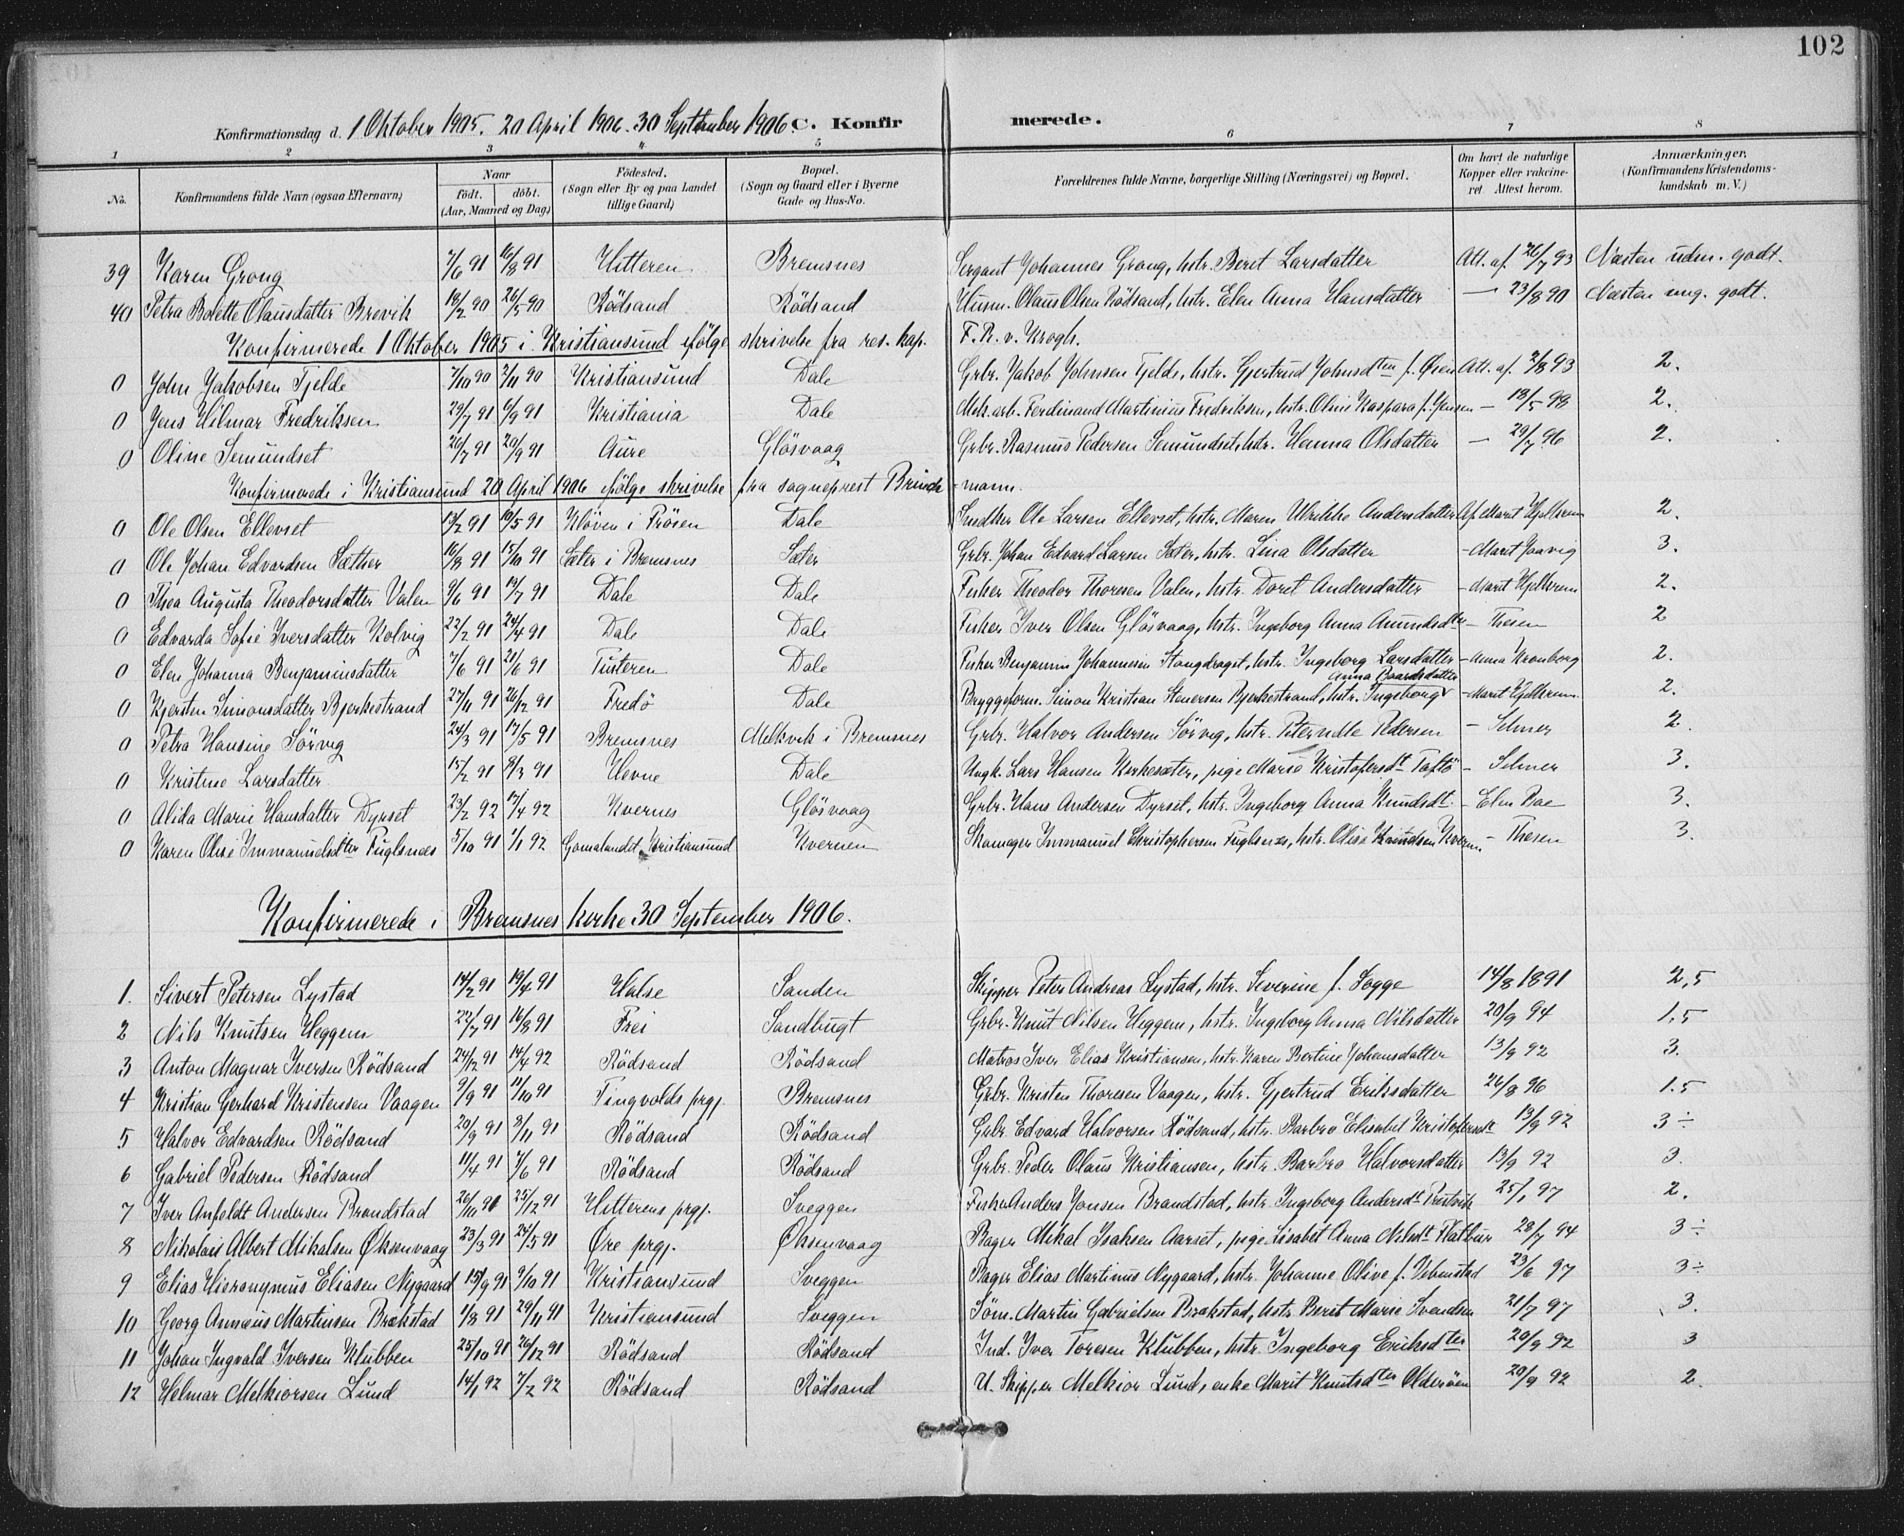 102
Konfirmationsdag d. 1 Oktober 1905. 20 April 1906. 30 September 1906. C. Konfirmerede.
1 2 3 4 5 6 7 8
No. Konfirmandens fulde Navn (ogsaa Efternavn) Naar födt. döbt. (Aar, Maaned og Dag) Födested. (Sogn eller By og paa Landet tillige Gaard) Bopæl. (Sogn og Gaard eller i Byerne Gade og Hus-No. Forældrenes fulde Navne, borgerlige Stilling (Næringsvei) og Bopæl. Om havt de naturlige Kopper eller vakcineret Attest herom. Anmærkninger. (Konfirmandens Kristendomskundskab m. V.)
39 Karen Grong 7/6 91 16/8 91 Hitteren Bremsnes Sergant Johannes Grong, hstr. Beret Larsdatter Att. af 26/7 93 Næsten udm. godt.
40 Petra Bolette Olausdatter Brevik 18/2 90 26/5 90 Rödsand Rödsand Husm. Olaus Olsen Rödsand, hstr. Elen Anna Hansdatter — 23/8 90 Næsten mg. godt.
Konfirmerede 1 Oktober 1905 i Kristiansund ifölge skrivelse fra res. kap. F. R. v. Krogh.
0 John Jakobsen Tjelde 7/10 90 2/11 90 Kristiansund Dale Grbr. Jakob Johnsen Tjelde, hstr. Gjertrud Johnsdten f. Øien Att. af 2/8 93 2.
0 Jens Hilmar Fredriksen 29/7 91 6/9 91 Kristiania Dale Mek. arb. Ferdinand Martinius Fredriksen, hstr. Oline Kaspara f. Jensen — 18/5 98 2.
0 Oline Semundset 26/7 91 20/9 91 Aure Glösvaag Grbr. Rasmus Pedersen Semundset, hstr. Hanna Olsdatter — 29/7 96 2.
Konfirmerede i Kristiansund 20 April 1906 ifölge skrivelse fra sogneprest Brinchmann.
0 Ole Olsen Ellevset 13/2 91 10/5 91 Klöven i Frösen Dale Snedker Ole Larsen Ellevset, hstr. Maren Ulrikke Andersdatter Af Marit Hjelkrem 2.
0 Ole Johan Edvardsen Sæther 16/8 91 15/10 91 Sæter i Bremsnes Sæter Grbr. Johan Edvard Larsen Sæter, hstr. Lina Olsdatter — Marit Jaavig 3.
0 Thea Augusta Theodorsdatter Valen 9/6 91 19/7 91 Dale Dale Fisker Theodor Thoresen Valen, hstr. Doret Andersdatter — Marit Hjelkrem 2.
0 Edvarda Sofie Iversdatter Kolvig 22/2 91 24/4 91 Dale Dale Fisker Iver Olsen Glösvaag, hstr. Ingeborg Anna Amundsdtr — Thesen 2
0 Elen Johanna Benjaminsdatter 7/6 91 21/6 91 Tusteren Dale Fisker Benjamin Johannesen Stangdraget, hstr. Ingeborg Larsdatter — Anna Kronborg 2.
0 Kjersten Simonsdatter Bjerkestrand 27/11 91 26/12 91 Fredö Dale Bryggeform. Simon Kristian Stenersen Bjerkestrand, hstr. Ingeborg Anna Baardsdatter — Marit Hjelkrem 2.
0 Petra Hansine Sörvig 24/3 91 17/5 91 Bremsnes Melkvik i Bremsnes Grbr. Halvor Andersen Sörvig, hstr. Peternelle Pedersen — Selmer 2.
0 Kristine Larsdatter 15/2 91 8/3 91 Hevne Dale Ungk. Lars Hansen Kirkesæter, pige Marie Kristofersdt Taftö — Selmer 3.
0 Alida Marie Hansdatter Dyrset 23/2 92 17/4 92 Kvernes Glösvaag Grbr. Hans Andersen Dyrset, hstr. Ingeborg Anna Knudsdt. — Elen Bae 3.
0 Karen Olise Immanuelsdter Fuglsnes 5/10 91 1/1 92 Gomalandet Kristiansund Kvernen Skomager Immanuel Christophersen Fuglsnes, hstr. Olise Knudsen Kvern. — Thesen 3.
Konfirmerede i Bremsnes kirke 30 September 1906.
1. Sivert Petersen Lystad 14/2 91 19/4 91 Halse Sanden Skipper Peter Andreas Lystad, hstr. Severine f. Sogge 14/8 1891 2,5
2 Nils Knutsen Heggem 22/7 91 16/8 91 Frei Sandbugt Grbr. Knut Nilsen Heggem, hstr. Ingeborg Anna Nilsdatter 20/9 94 1,5
3 Anton Magnar Iversen Rödsand 24/12 91 14/4 92 Rödsand Rödsand Matros Iver Elias Kristiansen, hstr. Karen Bertine Johansdatter 13/9 92 3.
4 Kristian Gerhard Kristensen Vaagen 9/9 91 11/10 91 Tingvolds prgj. Bremsnes Grbr. Kristen Thoresen Vaagen, hstr. Gjertrud Eriksdatter 26/8 96 1.5
5 Halvor Edvardsen Rödsand 20/9 91 8/11 91 Rödsand Rödsand Grbr. Edvard Halvorsen Rödsand, hstr. Barbro Elisabet Kristofersdt 13/9 92 3 ÷
6 Gabriel Pedersen Rödsand 11/4 91 7/6 91 Rödsand Rödsand Grbr. Peder Olaus Kristiansen, hstr. Barbro Halvorsdatter 13/9 92 3.
7 Iver Anfeldt Andersen Brandstad 26/10 91 25/12 91 Hitterens prgj. Sveggen Fisker Anders Jonsen Brandstad, hstr. Ingeborg Andersdt Prestvik 25/1 97 2.
8 Nikolais Albert Mikalsen Øksenvaag 23/3 91 24/5 91 Øre prgj. Øksenvaag Bager Mikal Isaksen Aarset, pige Lisabet Anna Nilsdt Flatbur 28/7 94 3 ÷
9 Elias Hieronymus Eliasen Nygaard 15/9 91 9/10 91 Kristiansund Sveggen Bager Elias Martinus Nygaard, hstr. Johanne Olive f. Vebenstad 23/6 97 3 ÷
10 Georg Annæus Martinsen Brækstad 1/8 91 29/11 91 Kristiansund Sveggen Söm. Martin Gabrielsen Brækstad, hstr. Berit Marie Svendsen 21/7 97 3.
11 Johan Ingvald Iversen Klubben 25/10 91 26/12 91 Rödsand Rödsand Ind. Iver Toresen Klubben, hstr. Ingeborg Eriksdter 20/9 92 3
12 Helmar Melkiorsen Lund 14/1 92 7/2 92 Rödsand Rödsand U. Skipper Melkior Lund, enke Marit Knutsdter Olderöen 20/9 92 2.